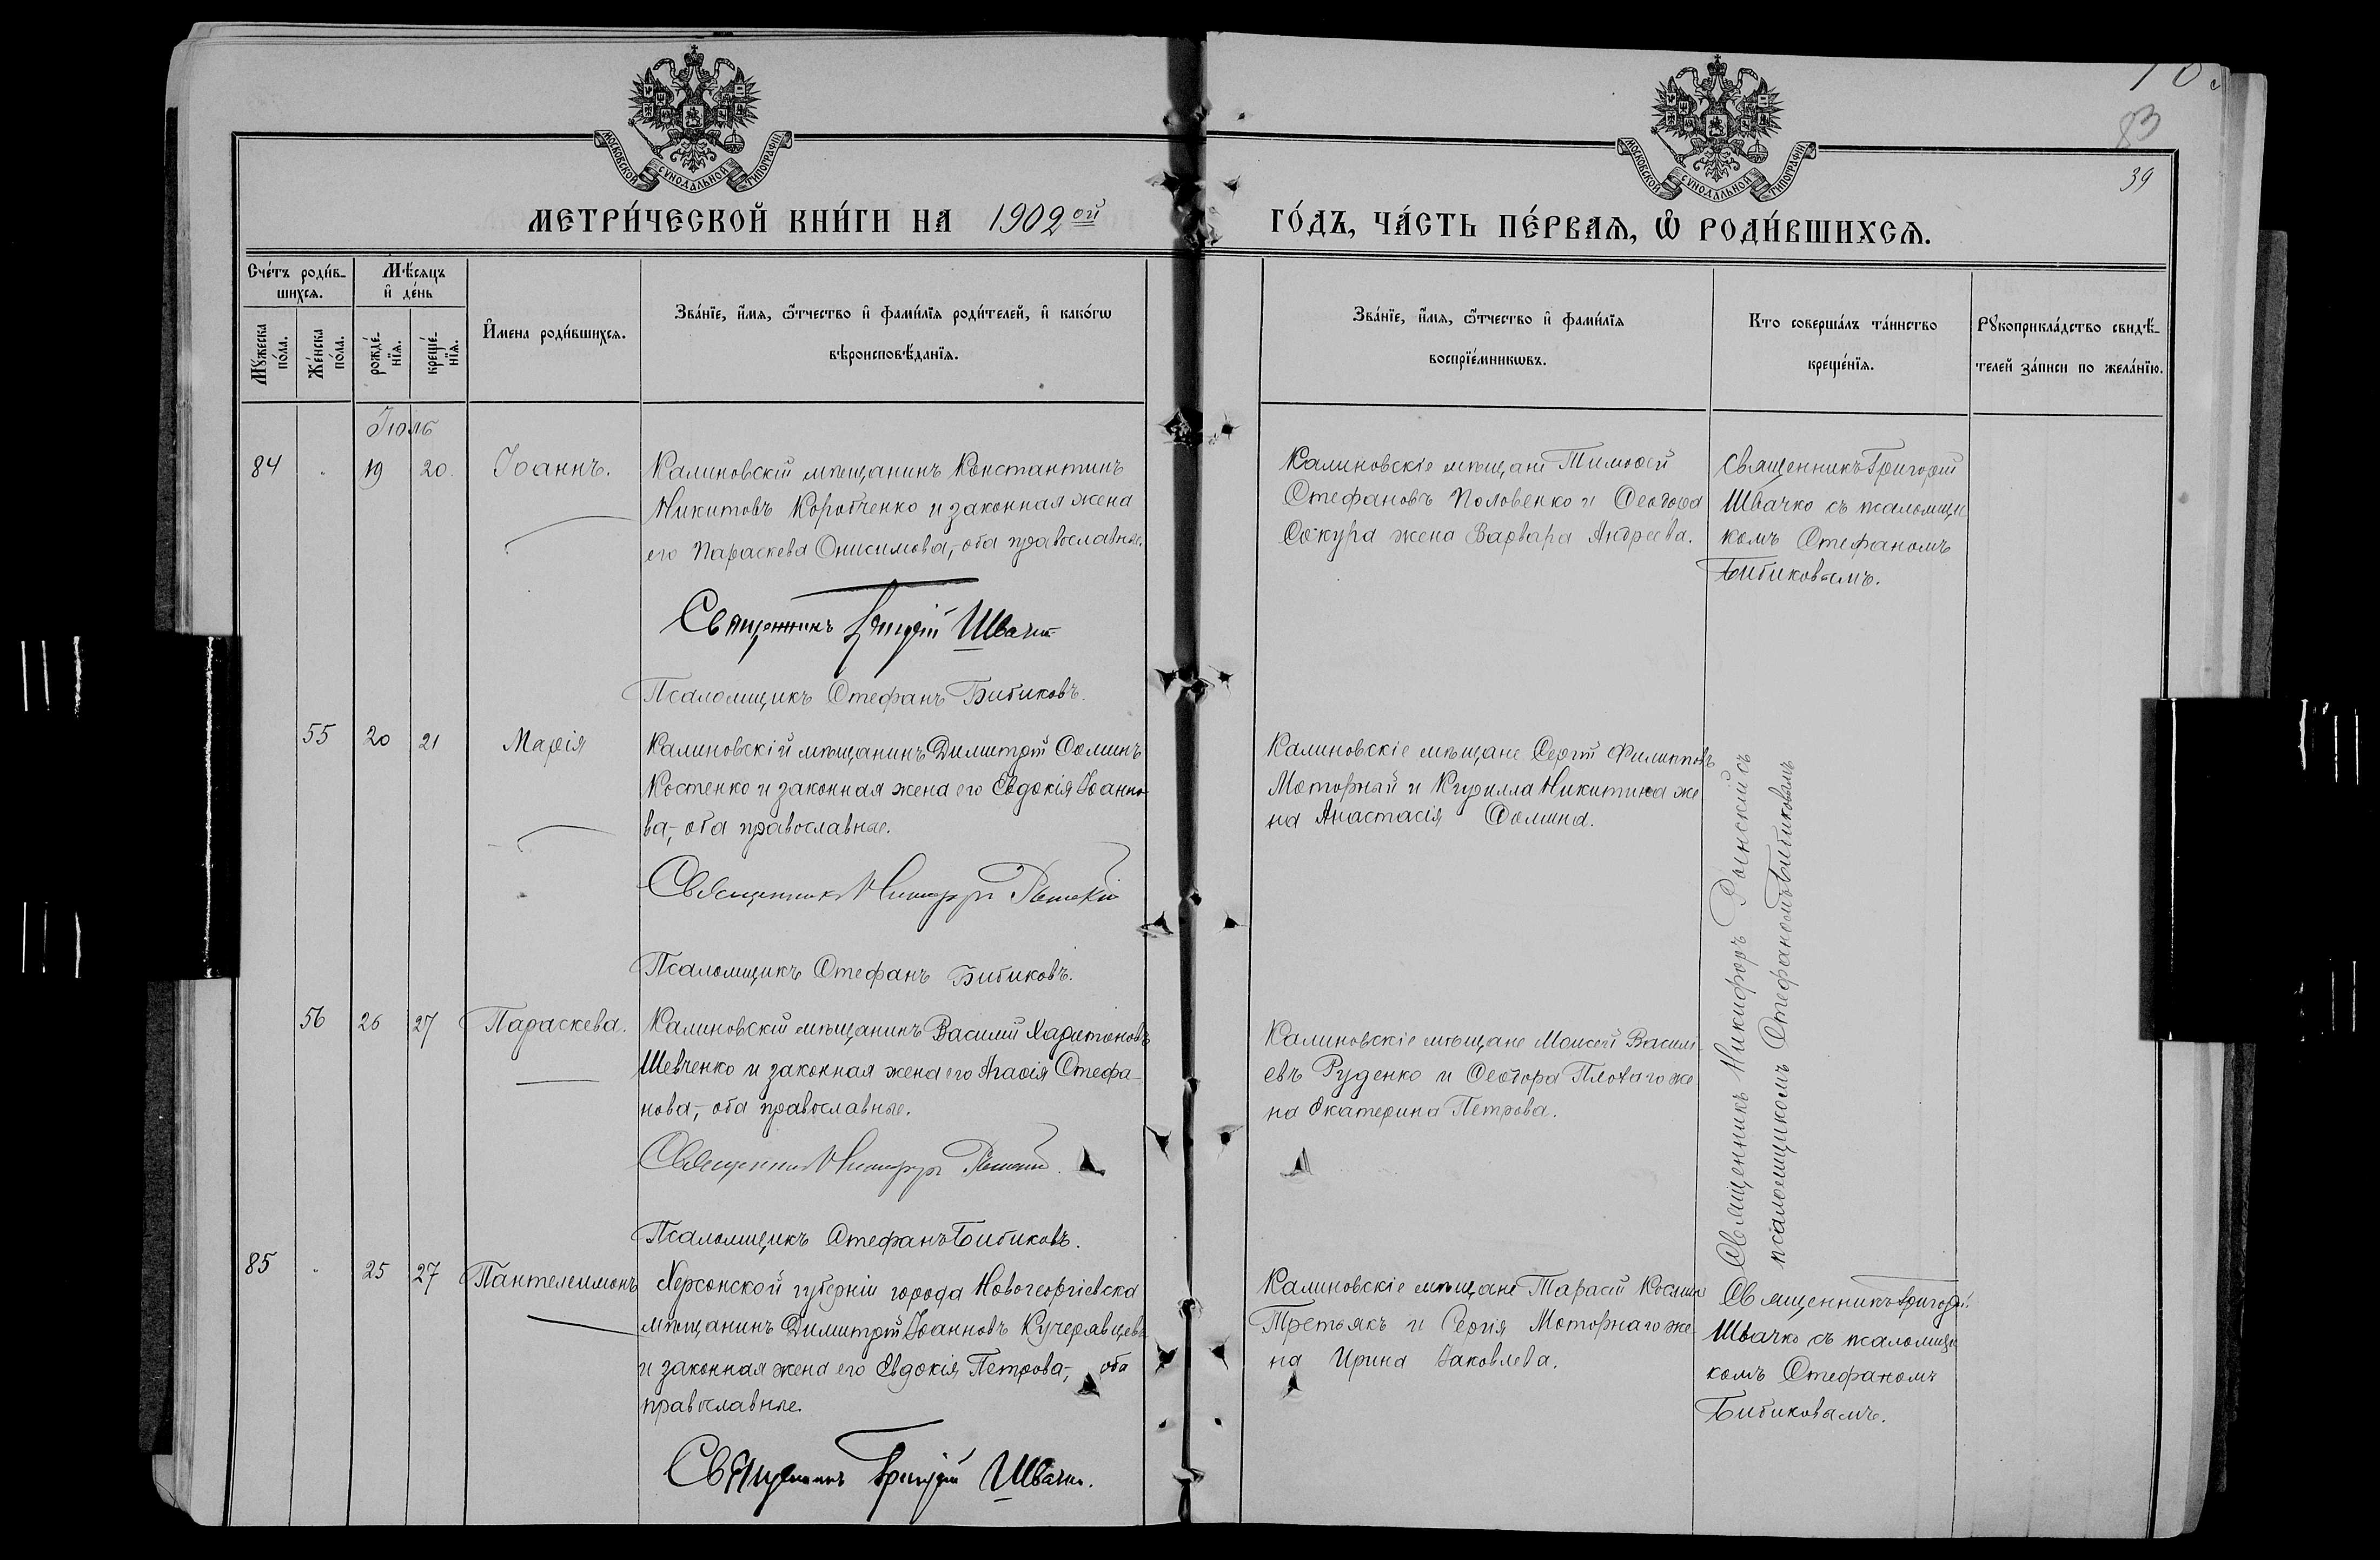 83
39
МОСКОВСКОЙ СУНОДАЛЬНОЙ ТИПОГРАФІИ
МОСКОВСКОЙ СУНОДАЛЬНОЙ ТИПОГРАФІИ
МЕТРИ́ЧЕСКОЙ КНИ́ГИ НА 1902 ой ГО́ДЪ, ЧА́СТЬ ПЕ́РВАѦ, Ѡ҆ РОДИ́ВШИХСѦ.
Сче́тъ роди́в-
шихсѧ.
Мꙋ́жеска
по́ла.
Же́нска
по́ла.
Мѣ́сѧцъ
и҆ де́нь
рожде́-
нїѧ.
креще́-
нїѧ.
И҆мена роди́вшихсѧ.
Зва́нїе, и҆́мѧ, ѻ҆́тчество и҆ фами́лїѧ роди́телей, и҆ како́гѡ
вѣроисповѣ́данїѧ.
Зва́нїе, и҆́мѧ, ѻ҆́тчество и҆ фами́лїѧ
воспрїе́мникѡвъ.
Кто соверша́лъ та́инство
креще́нїѧ.
Рꙋкоприкла́дство свидѣ́-
телей за́писи по жела́нїю.
Іюль
84 19 20. Іоаннъ.
Калиновскій мѣщанинъ Константинъ
Никитовъ Коробченко и законная жена
его Параскева Онисимова,- оба православные.
Священникъ Григорій Швачко
Псаломщикъ Стефанъ Бибиковъ.
Калиновскіе мѣщане Тимоѳей
Стефановъ Половенко и Ѳеодора
Сокура жена Варвара Андреева.
Священникъ Григорій
Швачко съ псаломщи
комъ Стефаномъ
Бибиковымъ.
55 20 21 Марія
Калиновскій мѣщанинъ Димитрій Ѳоминъ
Костенко и законная жена его Евдокія Іоанно
ва,- оба православные.
Священникъ Никифоръ Рынскій
Псаломщикъ Стефанъ Бибиковъ.
Калиновскіе мѣщане Сергій Филипповъ
Моторный и Кирилла Никитина же
на Анастасія Ѳомина.
Священникъ Никифоръ Рынскій съ
псаломщикомъ Стефаномъ Бибиковымъ
56 26 27 Параскева.
Калиновскій мѣщанинъ Василій Харитоновъ
Шевченко и законная жена его Агаѳія Стефа-
нова,- оба православные.
Священникъ Никифоръ Рынскій.
Псаломщикъ Стефанъ Бибиковъ.
Калиновскіе мѣщане Моисей Василі-
евъ Руденко и Ѳеодора Плохаго же
на Екатерина Петрова.
85 25 27 Пантелеимонъ
Херсонской губерніи города Новогеоргіевска
мѣщанинъ Димитрій Іоанновъ Кучерявцевъ
и законная жена его Евдокія Петрова,- оба
православные.
Священникъ Григорій Швачко.
Калиновскіе мѣщане Тарасій Космин
Третьякъ и Сергія Моторнаго же
на Ирина Іаковлева.
Священникъ Григорій
Швачко съ псаломщи
комъ Стефаномъ
Бибиковымъ.